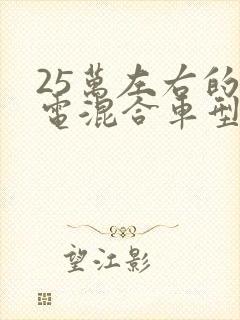 25萬左右的
電混合車型
望江影